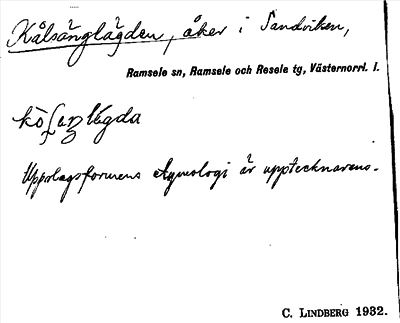 Kålsänglägden, åker i Sandviken,
Ramsele sn, Ramsele och Resele tg, Västernorrl. l.
Uppslagsformens etymologi är upptecknarens.
C. LINDBERG 1932.